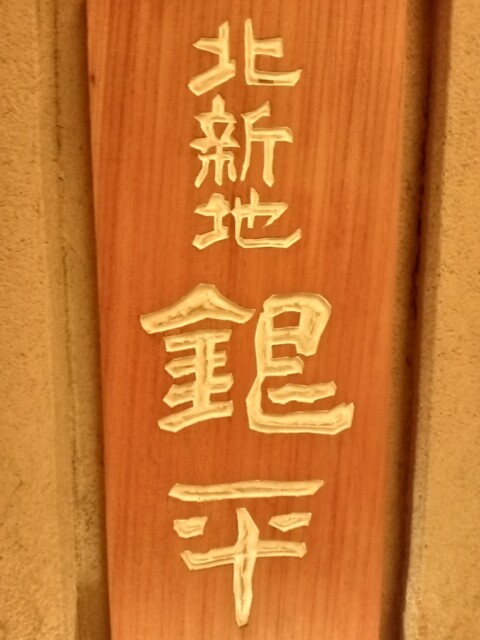 北新地
銀平